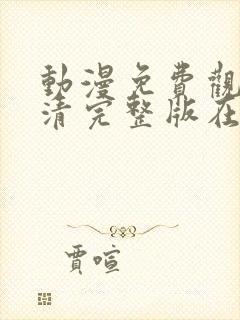 動漫免費觀
清完整版在
賈喧